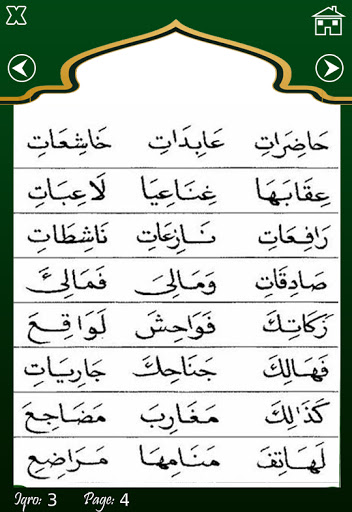 حَاضِرَاتِ عَابِدَاتِ خَاشِعَاتِ
عِقَابَهَا غِنَاعِيَا لَاعِبَاتِ
رَافِعَاتِ نَازِعَاتِ نَاشِطَاتِ
صَادِقَاتِ وَمَالِيَ فَمَالِئَ
زَكَاتِكَ فَوَاحِشَ لَوَاقِعَ
فَهَالِكَ جَنَاحِكَ جَارِيَاتِ
كَذَالِكَ مَغَارِبَ مَضَاجِعَ
لَهَاتِفَ مَنَامِهَا مَرَاضِعِ
Iqro: 3 Page: 4